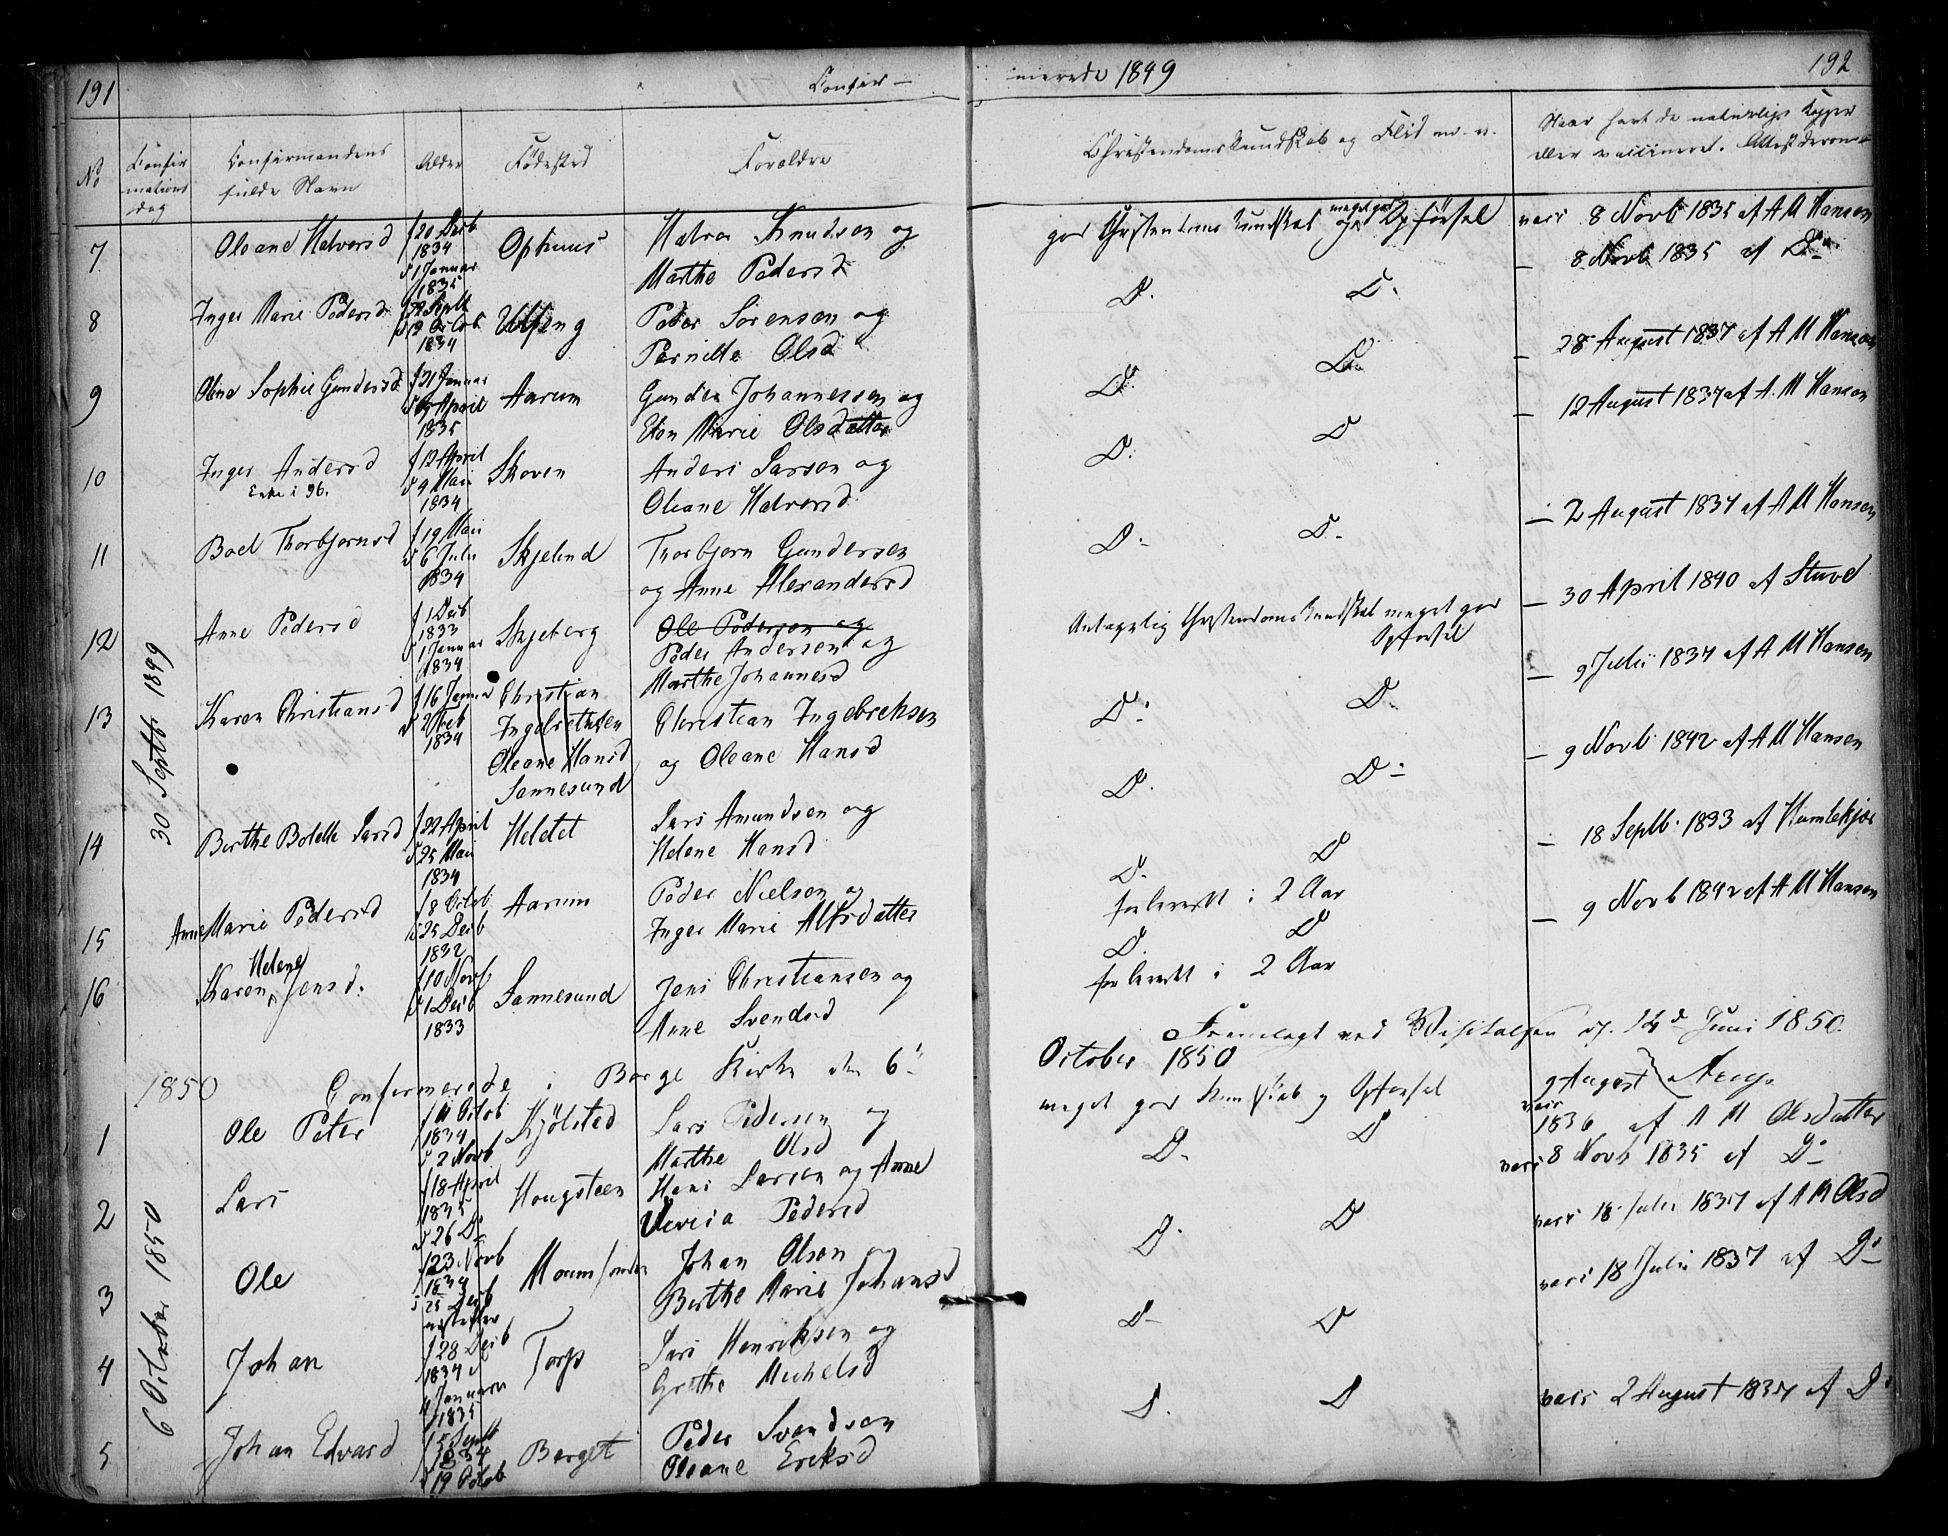 191
Confir-
merede 1849
192
No
Confirmations dag
Confirmandens fulde Navn
Alder
Fødested
Forældre
Christendomskundskab og Flid m. v.
Naar havt de naturlige Kopper
eller vaccineret. Attest derom
30 Septb 1849
7 Oleane Halvorsd f 20 Decb 1834 d 1 Januar 1835 Ophuus Halvor Knudsen og
Marthe Pedersd
god Christendomskundskab og meget god Opførsel vacc 8 Novb 1835 af A M Hansen
8 Inger Marie Pedersd Peder Sørensen og
Pernille Olsd
D. D. — 8 Novb 1835 af Do
9 Oline Sophie Gundersd f 21 Januar d April 1835 Aarum Gunder Johannessen og
Marie Olsdatter
D. D. — 28 August 1837 af A M Hansen
10 Inger Andersd f 12 April d 4 Mai 1834 Skoven Anders Larsen og
Oleane Halvorsd
D. D — 12 August 1837 af A. M Hansen
11 Boel Thorbjørnsd f 19 Mai d 6 Julii 1834 Skjelind Thorbjørn Gundersen
og Anne Alexandersd
D. D. — 2 August 1837 af A M Hansen
12 Anne Pedersd f 1 Decb 1833 d 1 Januar 1834 Skjeberg Ole Pedersen og
Peder Andersen og
Marthe Johannesd
Antagelig Christendomskundskab meget god
Opførsel
— 30 April 1840 af Stuvd
13 Karen Christiansd f 16 Januar d 2 Feb 1834 Christian
Ingebrethsen
Oleane Hansd
Sannesund
Christian Ingebrehsen
og Oleane Hansd
D. D. — 9 Julii 1837 af A M Hansen
14 Berthe Bolette Larsd f 22 April d 25 Mai 1834 Heldet Lars Amundsen og
Helene Hansd
D. D. — 9 Novb 1842 af A M Hansen
15 Anne Marie Pedersd f 8 Octob d 25 Decb 1832 Aarum Peder Nielsen og
Inger Marie Alfsdatter
D. D
forlovet i 2 Aar
— 18 Septb. 1833 af Humlekjær
16 Karen Helene Jensd. f 10 Novb d 1 Decb 1833 Sannesund Jens Christiansen og
Anne Svendsd
D. D
i 2 Aar
— 9 Novb 1842 af A M Hansen
Fremlagt ved Visitatsen d. 14d Juni 1850.
Arup.
1850 Confirmerede i Borge Kirke den 6t October 1850
6 October 1850
1 Ole Peter f 11 Octob 1834 d 2 Novb Kjølsted Lars Pedersen og
Marthe Olsd
meget god Kundskab og Opførsel
vacc 9 August 1836 af A M Olsdatter
2 Lars f 18 April 1835 d 26 Do Hougsteen Hans Larsen og Anne
Pedersd
D. D vacc 8 Novb 1835 af Do
3 Ole f 23 Novb 1834 d 25 Decb Moum Johan Olsen og
Berthe Marie Johansd
D. D vacc 18 Julii 1837 af A M Olsd
4 Johan f 28 Decb 1834 d Januar 1835 Torp Lars Henriksen og
Grethe Michelsd
D D vacc 18 Julii 1837 af Do
5 Johan Edvard f Septb 1834 d 19 Octob Berget Peder Svendsen
Oleane Eriksd
D. D vacc 2 August 1837 af Do